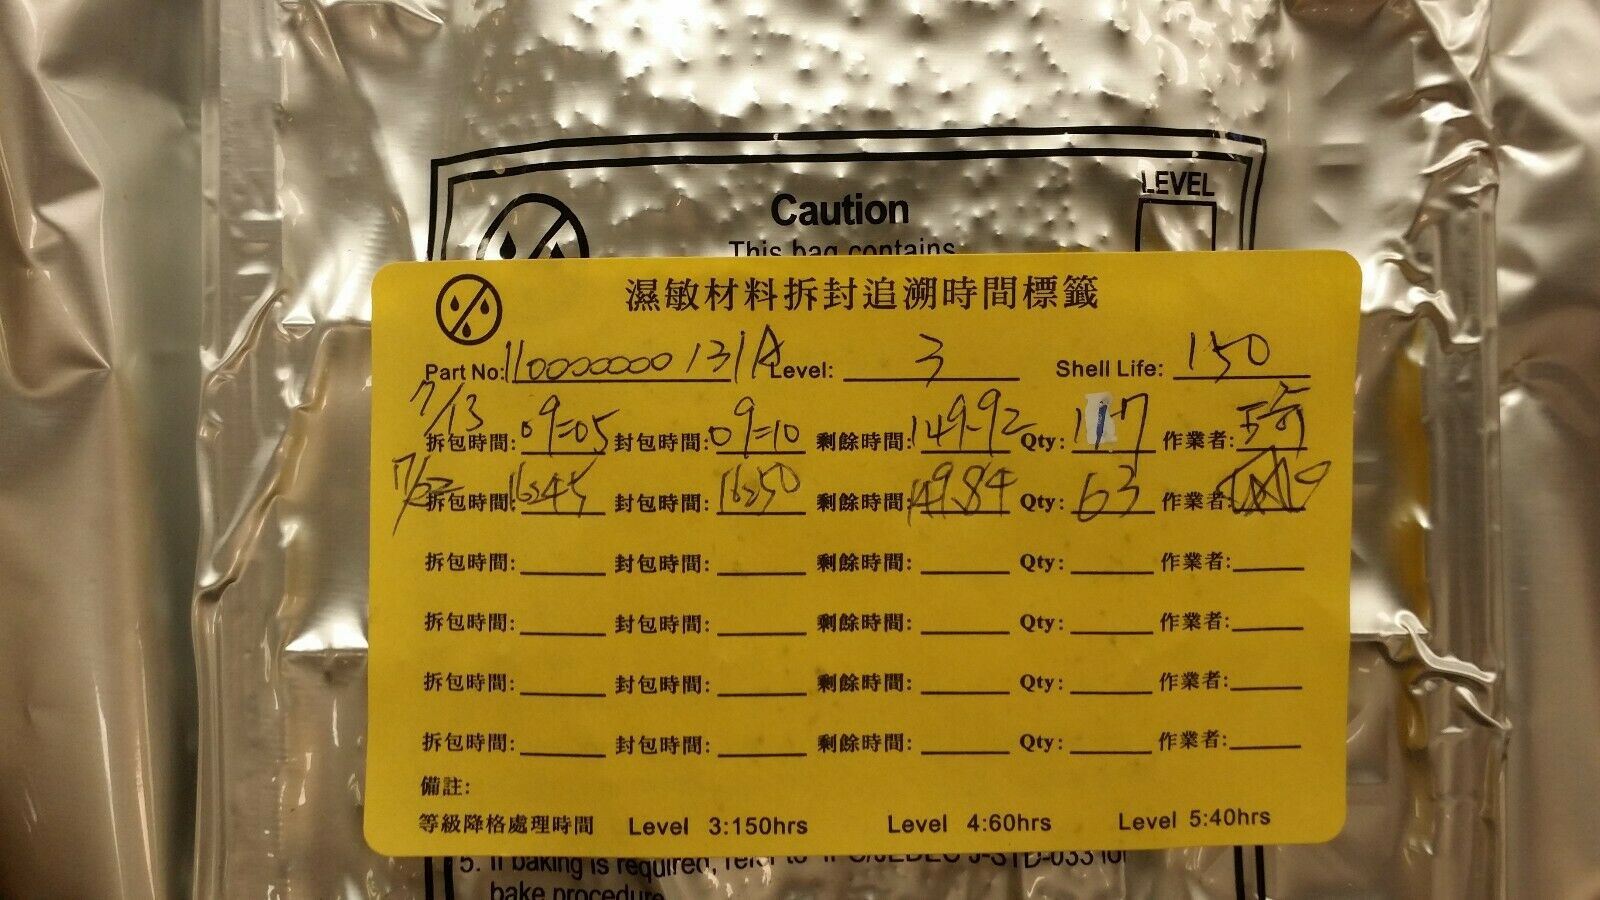 Caution
LEVEL
This bag contains
濕敏材料拆封追溯時間標籤
Part No: 110000000131A Level: 3 Shell Life: 150
7/13
拆包時間: 09:05 封包時間: 09:10 剩餘時間: 149.92 Qty: 117 作業者:
拆包時間: 16:45 封包時間: 16:50 剩餘時間: 149.84 Qty: 63 作業者:
拆包時間: 封包時間: 剩餘時間: Qty: 作業者:
拆包時間: 封包時間: 剩餘時間: Qty: 作業者:
拆包時間: 封包時間: 剩餘時間: Qty: 作業者:
拆包時間: 封包時間: 剩餘時間: Qty: 作業者:
備註:
等級降格處理時間 Level 3:150hrs Level 4:60hrs Level 5:40hrs
5. If baking is required, refer to IPC/JEDEC J-STD-033 for
bake procedure